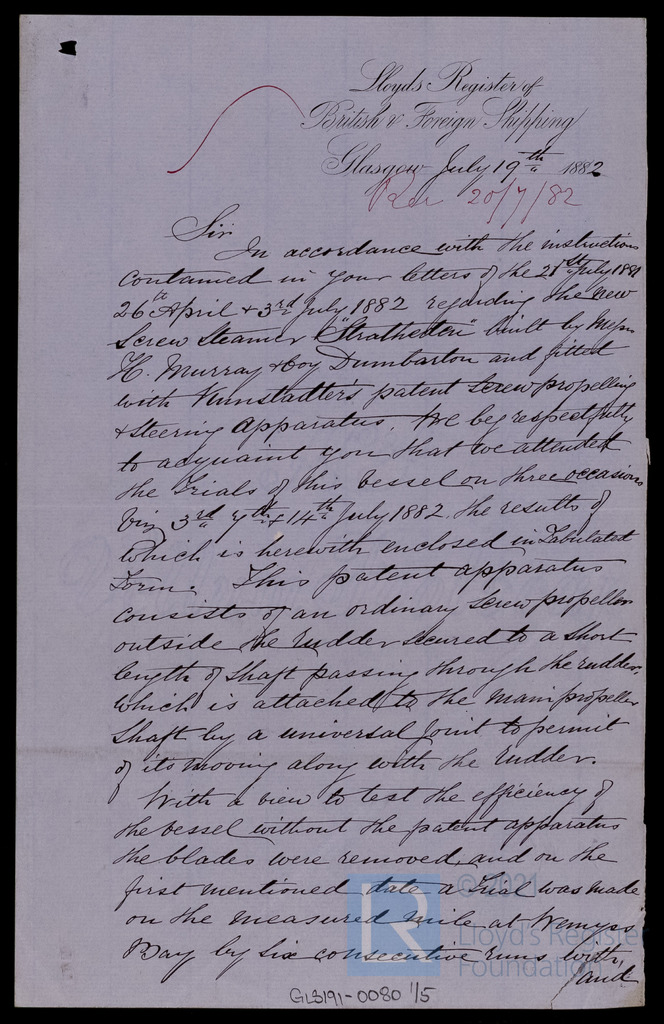 Lloyds Register of
British & Foreign Shipping
Glasgow July 19th 1882
Rec 20/7/82
Sir
In accordance with the instructions
contained in your letters of the 21st July 1881
26th April & 3rd July 1882 regarding the new
Screw Steamer "Strathesten" built by Messrs
H. Murray & Coy Dumbarton and fitted
with Kunstadter's patent Screw propelling
& Steering Apparatus. We beg respectfully
to acquaint you that we attended
the Trials of this vessel on three occasions
Viz 3rd 7th & 14th July 1882, the results of
which is herewith enclosed in Tabulated
Form. This patent apparatus
consists of an ordinary Screw propeller
outside the rudder secured to a short
length of Shaft passing through the rudder,
which is attached to the main propeller
Shaft by a universal Joint to permit
of its moving along with the rudder.
With a view to test the efficiency of
the vessel without the patent apparatus
the blades were removed, and on the
first mentioned date a Trial was made
on the measured mile at Wemyss
Bay by six consecutive runs with
and
GLS191-0080 1/5
R
© 2021
Lloyd's Register
Foundation